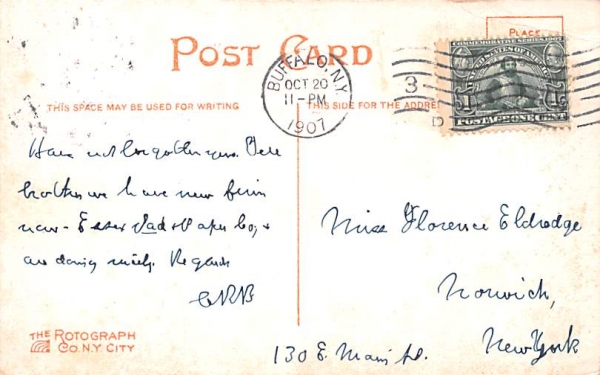 POST CARD
PLACE
BUFFALO, N.Y.
OCT 20
11-PM
1907
3
D
COMMEMORATIVE SERIES 1907
UNITED STATES OF AMERICA
1 1
POSTAGE ONE CENT
THIS SPACE MAY BE USED FOR WRITING
THIS SIDE FOR THE ADDRE
Have not forgotten you. Tell
brother we have new firm
now - Essex Pad & Paper Co, &
are doing nicely. Regards
CRB
Miss Florence Eldredge
Norwich,
New York
130 E. Main St.
THE ROTOGRAPH
CO. N.Y. CITY